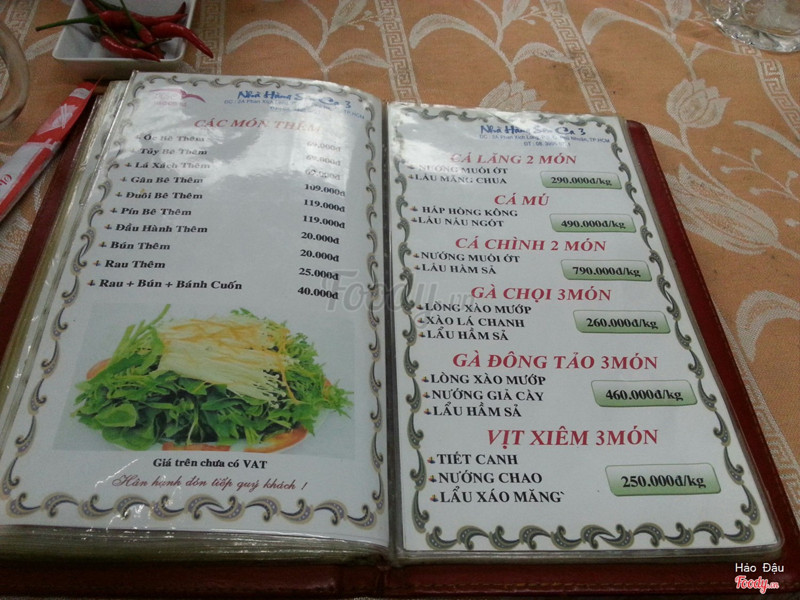 Nhà Hàng
3
CÁC MÓN THÊM
Óc Bê Thêm
69.000đ
Tủy Bê Thêm
69.000đ
Lá Xách Thêm
Gân Bê Thêm
109.000đ
Đuôi Bê Thêm
119.000đ
Pín Bê Thêm
119.000đ
Đầu Hành Thêm
20.000đ
Bún Thêm
20.000đ
Rau Thêm
25.000đ
Rau + Bún + Bánh Cuốn
40.000đ
Giá trên chưa có VAT
Hân hạnh đón tiếp quý khách !
Nhà Hàng 3
CÁ LĂNG 2 MÓN
NƯỚNG MUỐI ỚT
LẨU MĂNG CHUA
290.000đ/kg
CÁ MÚ
HẤP HỒNG KÔNG
LẨU NẤU NGÓT
490.000đ/kg
CÁ CHÌNH 2 MÓN
NƯỚNG MUỐI ỚT
LẨU HẦM SẢ
790.000đ/kg
GÀ CHỌI 3MÓN
LÒNG XÀO MƯỚP
XÀO LÁ CHANH
LẨU HẦM SẢ
260.000đ/kg
GÀ ĐÔNG TẢO 3MÓN
LÒNG XÀO MƯỚP
NƯỚNG GIẢ CẦY
LẨU HẦM SẢ
460.000đ/kg
VỊT XIÊM 3MÓN
TIẾT CANH
NƯỚNG CHAO
LẨU XÁO MĂNG
250.000đ/kg
Foody.vn
Hảo Đậu
Foody.vn